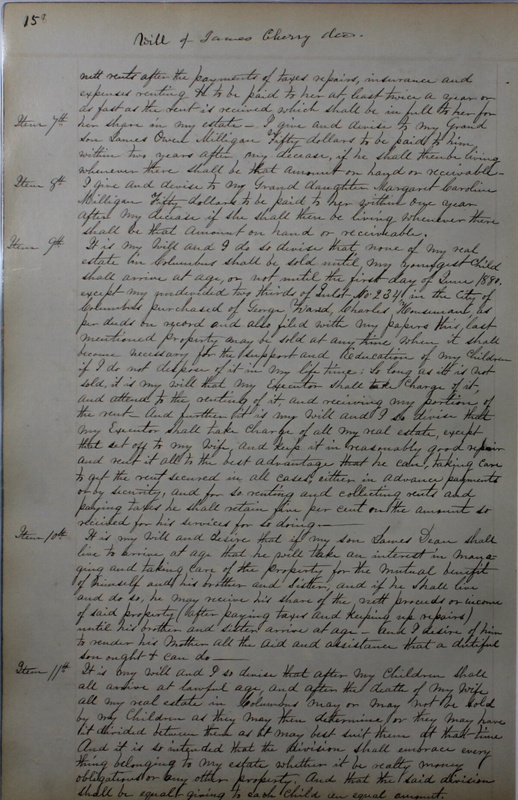 158
Will of James Cherry dec.
nett rents after the payments of taxes repairs, insurance and
expenses renting &c to be paid to her at least twice a year or
as fast as the rent is received which shall be in full to her for
Item 7th her share in my estate — I give and devise to my Grand
son James Owen Milligan Fifty dollars to be paid to him
within two years after my decease, if he shall then be living
whenever there shall be that amount on hand or receivable
Item 8th I give and devise to my Grand daughter Margaret Caroline
Milligan Fifty dollars to be paid to her within one year
after my decease if she shall there be living whenever there
shall be that amount on hand or receivable.
Item 9th It is my Will and I do so devise that none of my real
estate in Columbus shall be sold until my youngest child
shall arrive at age, or not until the first day of June 1880.
except my undivided two thirds of Inlot No 234 in the City of
Columbus purchased of George Ward, Charles Houseman, as
per deeds on record and also filed with my papers this last
mentioned property may be sold at any time when it shall
become necessary for the support and Education of my Children
if I do not dispose of it in my life time: So long as it is not
sold, it is my will that my Executor shall take charge of it,
and attend to the renting of it, and receiving my portion of
the rent And further it is my Will and I so devise that
my Executor shall take charge of all my real estate, except
that set off to my Wife, and keep it in reasonably good repair
and rent it all to the best advantage that he can, taking care
to get the rent secured in all cases, either in advance payments
or by security, and for so renting and collecting rents and
paying taxes he shall retain five per cent on the amount so
received for his services for so doing —
Item 10th It is my will and desire that if my son James Dean shall
live to arrive at age that he will take an interest in mana-
ging and taking care of the property for the mutual benefit
of himself and his brother and sister, and if he shall live
and do so, he may receive his share of the nett proceeds or income
of said property (after paying taxes and keeping up repairs)
until his brother and sister arrive at age — And I desire of him
to render his Mother all the aid and assistance that a dutiful
son ought & can do —
Item 11th It is my will and I so devise that after my Children shall
all arrive at lawful age, and after the death of my Wife
all my real estate in Columbus may or may not be sold
by my Children as they may then determine, or they may have
it divided between them as it may best suit them at that time
And it is so intended that the division shall embrace every
thing belonging to my estate whether it be realty, money
obligations or any other property. And that the said division
shall be equal giving to each child an equal amount.